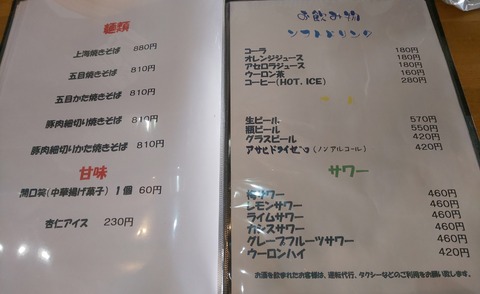 麺類
上海焼きそば 880円
五目焼きそば 810円
五目かた焼きそば 810円
豚肉細切り焼きそば 810円
豚肉細切りかた焼きそば 810円
甘味
開口笑(中華揚げ菓子) 1個 60円
杏仁アイス 230円
お飲み物
ソフトドリンク
コーラ 180円
オレンジジュース 180円
アセロラジュース 180円
ウーロン茶 160円
コーヒー(HOT. ICE) 280円
生ビール 570円
瓶ビール 550円
グラスビール 420円
アサヒドライゼロ (ノンアルコール) 420円
サワー
梅サワー 460円
レモンサワー 460円
ライムサワー 460円
カシスサワー 460円
グレープフルーツサワー 460円
ウーロンハイ 420円
お酒を飲まれたお客様は、運転代行、タクシーなどのご利用をお願い致します。